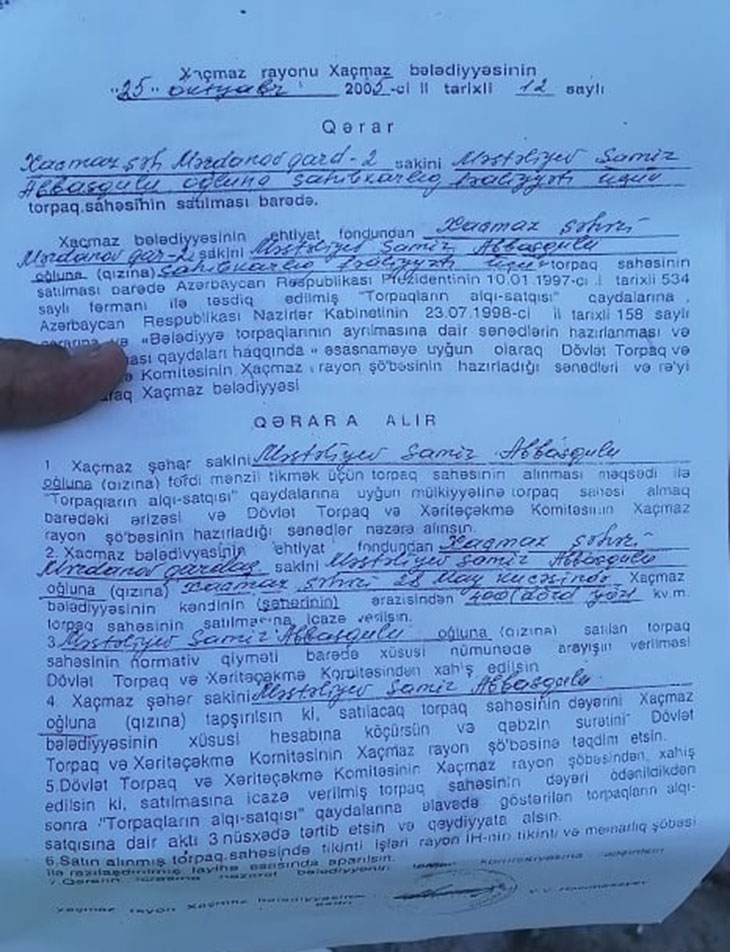 Xaçmaz rayonu Xaçmaz bələdiyyəsinin
"25" oktyabr 2005-ci il tarixli 12 saylı
Qərar
Xaçmaz şəh Mərdanov qard-2 sakini Məstəliyev Samir
Abbasqulu oğluna sahibkarlıq fəaliyyəti üçün
torpaq sahəsinin satılması barədə.
Xaçmaz bələdiyyəsinin ehtiyat fondundan Xaçmaz şəhəri
Mərdanov qar-2 sakini Məstəliyev Samir Abbasqulu
oğluna (qızına) sahibkarlıq fəaliyyəti üçün torpaq sahəsinin
satılması barədə Azərbaycan Respublikası Prezidentinin 10.01.1997-ci il tarixli 534
saylı fərmanı ilə təsdiq edilmiş "Torpaqların alqı-satqısı" qaydalarına,
Azərbaycan Respublikası Nazirlər Kabinetinin 23.07.1998-ci il tarixli 158 saylı
qərarına və «Bələdiyyə torpaqlarının ayrılmasına dair sənədlərin hazırlanması və
qaydaları haqqında» əsasnaməyə uyğun olaraq Dövlət Torpaq və
Komitəsinin Xaçmaz rayon şö'bəsinin hazırladığı sənədləri və rə'yi
Xaçmaz bələdiyyəsi
QƏRARA ALIR
1 Xaçmaz şəhər sakini Məstəliyev Samir Abbasqulu
oğluna (qızına) fərdi mənzil tikmək üçün torpaq sahəsinin alınması məqsədi ilə
"Torpaqların alqı-satqısı" qaydalarına uyğun mülkiyyətinə torpaq sahəsi almaq
barədəki ərizəsi və Dövlət Torpaq və Xəritəçəkmə Komitəsinin Xaçmaz
rayon şö'bəsinin hazırladığı sənədlər nəzərə alınsın.
2. Xaçmaz bələdiyyəsinin ehtiyat fondundan Xaçmaz şəhəri
Mərdanov qardaş sakini Məstəliyev Samir Abbasqulu
oğluna (qızına) Xaçmaz şəhəri 28 May küçəsində Xaçmaz
bələdiyyəsinin kəndinin (şəhərinin) ərazisindən 400 (dörd yüz) kv.m.
torpaq sahəsinin satılmasına icazə verilsin.
3. Məstəliyev Samir Abbasqulu oğluna (qızına) satılan torpaq
sahəsinin normativ qiyməti barədə xüsusi nümunədə arayışın verilməsi
Dövlət Torpaq və Xəritəçəkmə Komitəsindən xahiş edilsin
4. Xaçmaz şəhər sakini Məstəliyev Samir Abbasqulu
oğluna (qızına) tapşırılsın ki, satılacaq torpaq sahəsinin dəyərini Xaçmaz
bələdiyyəsinin xüsusi hesabına köçürsün və qəbzin surətini Dövlət
Torpaq və Xəritəçəkmə Komitəsinin Xaçmaz rayon şö'bəsinə təqdim etsin.
5.Dövlət Torpaq və Xəritəçəkmə Komitəsinin Xaçmaz rayon şöbəsindən xahiş
edilsin ki, satılmasına icazə verilmiş torpaq sahəsinin dəyəri ödənildikdən
sonra "Torpaqların alqı-satqısı" qaydalarına əlavədə göstərilən torpaqların alqı-
satqısına dair aktı 3 nüsxədə tərtib etsin və qeydiyyata alsın.
6.Satın alınmış torpaq sahəsində tikinti işləri rayon İH-nin tikinti və memarlıq şöbəsi
ilə razılaşdırılmış layihə əsasında aparılsın.
7.Qərarın icrasına nəzarət bələdiyyənin
Xaçmaz rayon Xaçmaz bələdiyyəsinin
sədri